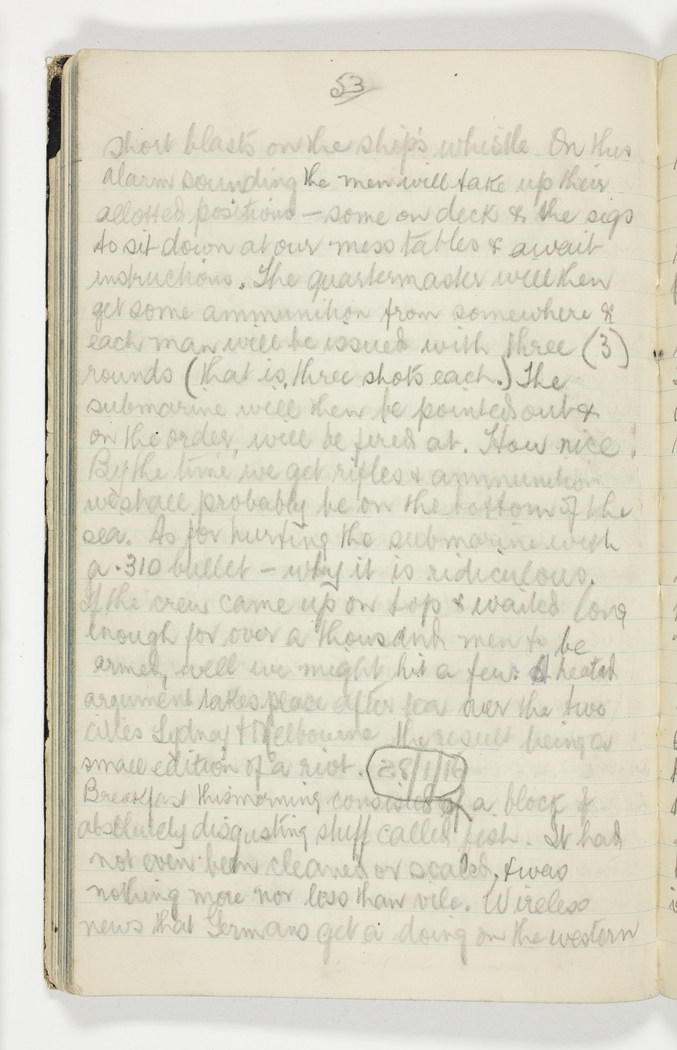 53
short blasts on the ship's whistle. On this
alarm sounding the men will take up their
allotted positions – some on deck & the sigs
to sit down at our mess tables & await
instructions. The quartermaster will then
get some ammunition from somewhere &
each man will be issued with three (3)
rounds (that is, three shots each.) The
submarine will then be pointed out &
on the order, will be fired at. How nice!
By the time we get rifles & ammunition
we shall probably be on the bottom of the
sea. As for hurting the submarine with
a .310 bullet – why it is ridiculous.
If the crew came up on top & waited long
enough for over a thousand men to be
armed, well we might hit a few. A heated
argument takes place after tea over the two
cities Sydney & Melbourne the result being a
small edition of a riot. 28/1/16
Breakfast this morning consisted of a block of
absolutely disgusting stuff called fish. It had
not even been cleaned or scaled, & was
nothing more nor less than vile. Wireless
news that Germans get a doing on the western